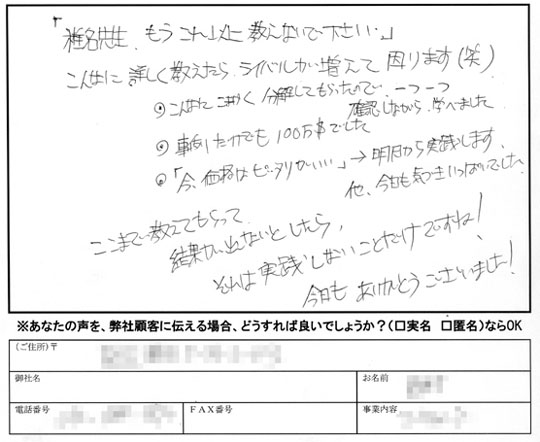 「椎名先生、もうこれ以上教えないで下さい。」
こんなに詳しく教えたら、ライバルが増えて困ります(笑)
◎こんなに細かく分解してもらったので、一つ一つ
確認しながら、学べました
でも100万事でした
◎「今、価格は → 明日から実践します、
他、今日も気づきいっぱいでした
ここまで教えてもらって
結果が出ないとしたら、
それは実践しないことだけですね!
今日もありがとうございました!
※あなたの声を、弊社顧客に伝える場合、どうすれば良いでしょうか?(□実名 □匿名)ならOK
(ご住所)〒
御社名
お名前
電話番号
FAX番号
事業内容